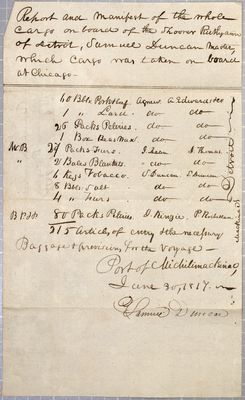 Report and Manifest of the whole
Cargo on board of the Skooner Ruthy ann
of detroit, Samuel Duncan Master,
which Cargo was taken on board
at Chicago
60 Bbls Pork & Agnew & Edwards do
1 " Lard do do
26 Packs Peltries. do do
1 Box Beas Wax do do
27 Packs Furs. J. Dean J. Thomas
2 Bales Blankets do do
6 Kegs Tobacco. S Duncan S Duncan
8 Bbls Salt do do
4 " Furs do do
80 Packs Peltries J. Kinzie
215 Articles of every other necessary
Baggage & provisions for the Voyage
Port of Michilimackinac
June 30, 1817
Samuel Duncan
Detroit